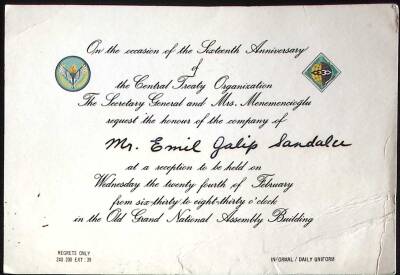 On the occasion of the Sixteenth Anniversary
of
the Central Treaty Organization
The Secretary General and Mrs. Menemencioglu
request the honour of the company of
Mr. Emil Galip Sandalcı
at a reception to be held on
Wednesday the twenty fourth of February
from six-thirty to eight-thirty o'clock
in the Old Grand National Assembly Building
REGRETS ONLY
240 200 EXT: 39
INFORMAL / DAILY UNIFORM